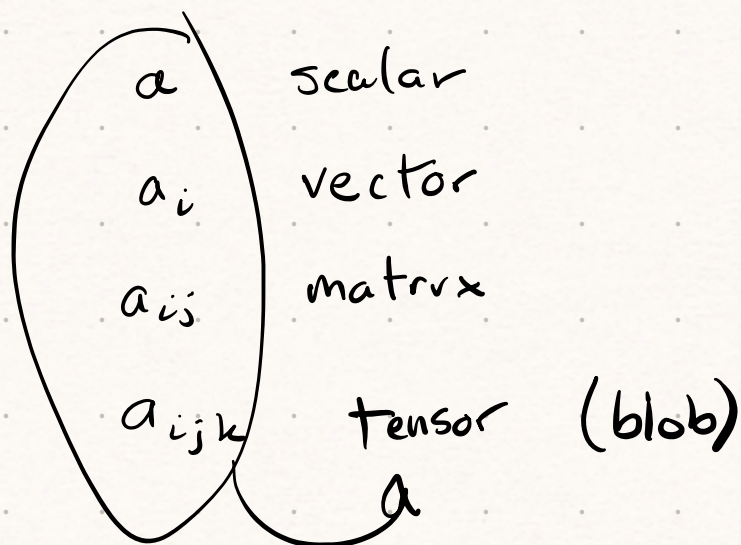 a scalar
a_i vector
a_ij matrix
a_ijk tensor (blob)
a